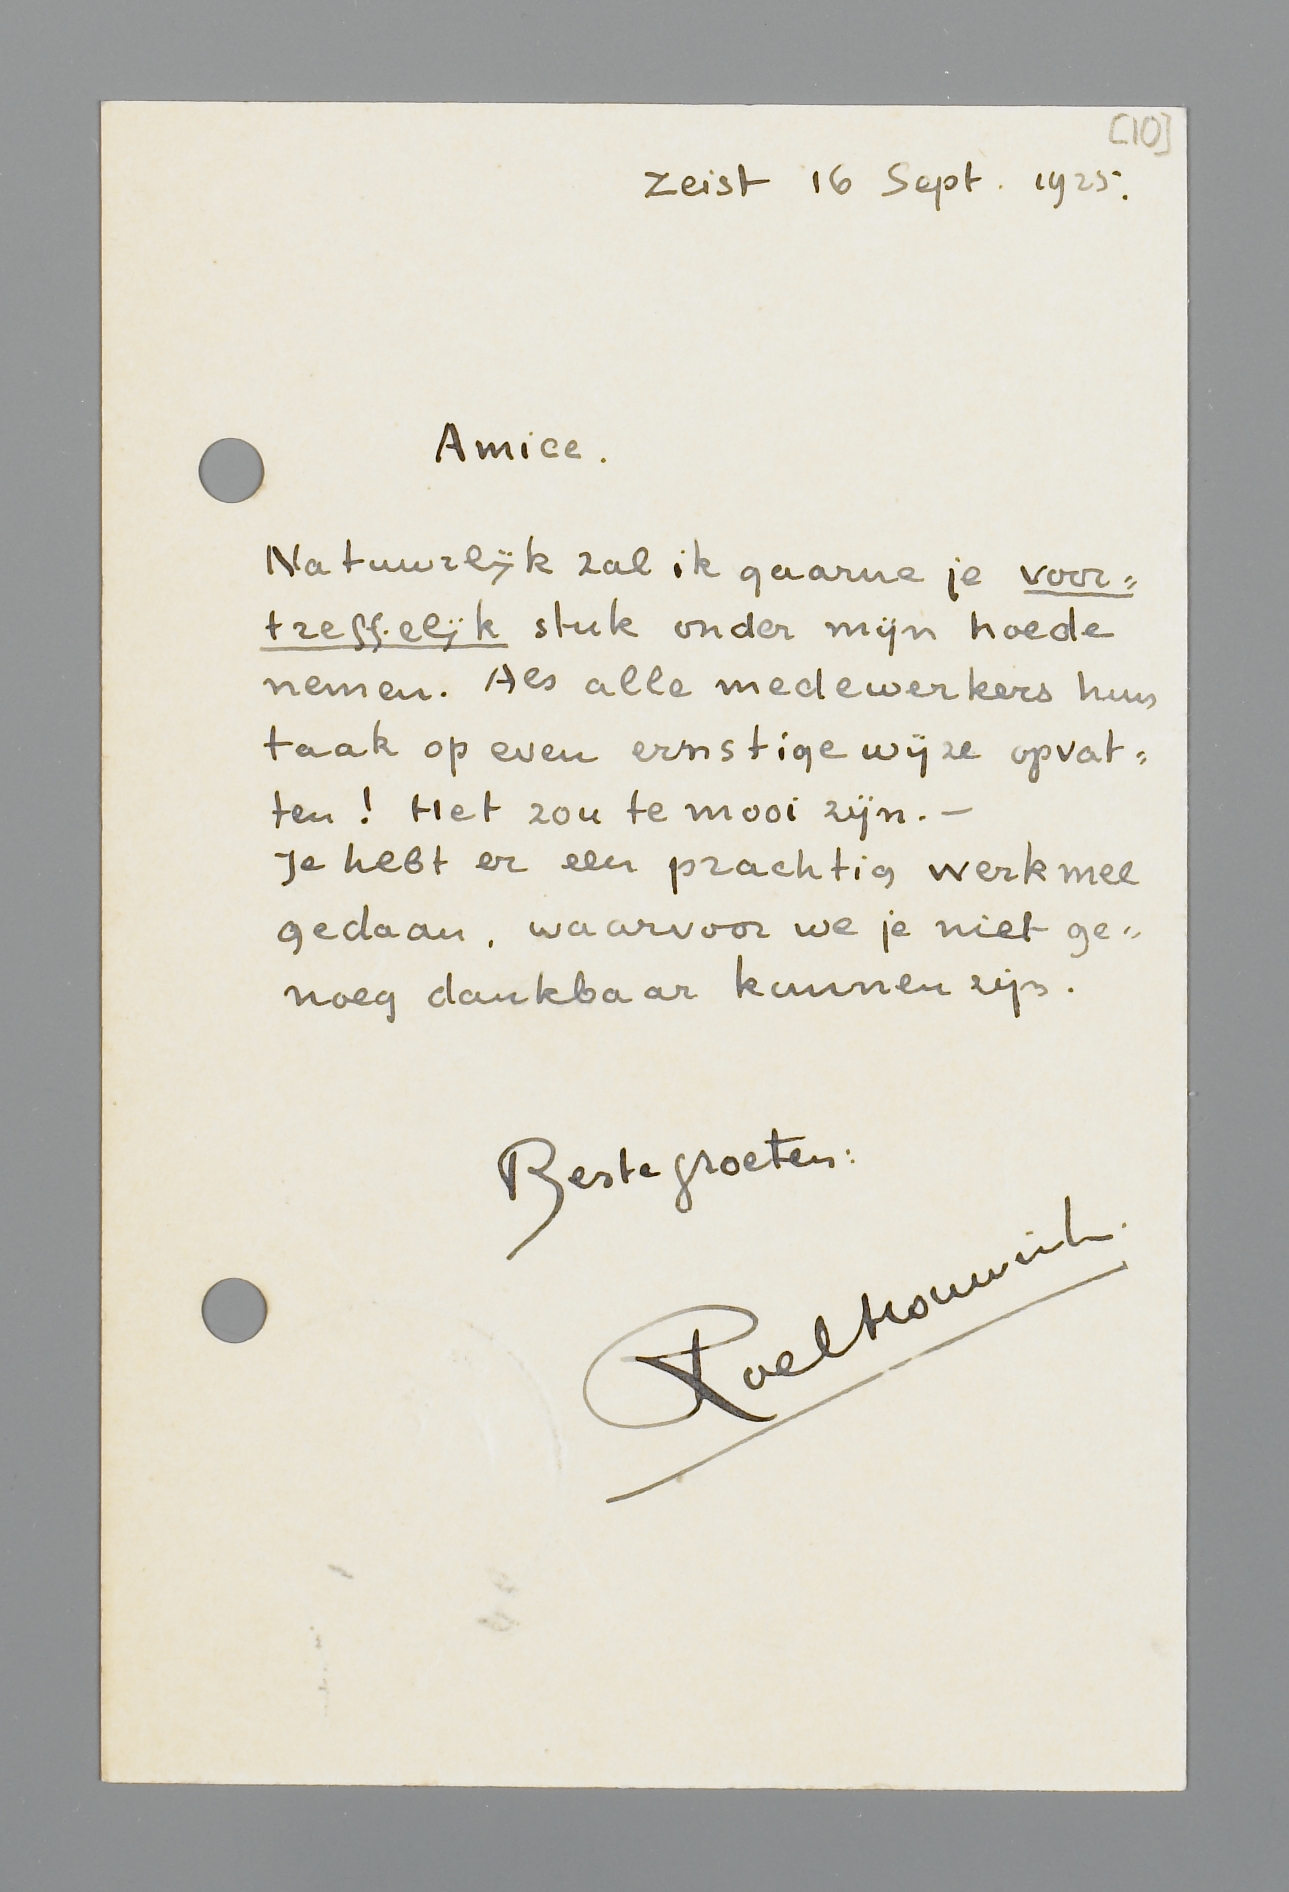 [10]
Zeist 16 Sept. 1925.
Amice.
Natuurlijk zal ik gaarne je voor=
treffelijk stuk onder mijn hoede
nemen. Als alle medewerkers hun
taak op even ernstige wijze opvat=
ten! Het zou te mooi zijn. —
Je hebt er een prachtig werk mee
gedaan, waarvoor we je niet ge=
noeg dankbaar kunnen zijn.
Beste groeten:
Roel Houwink.